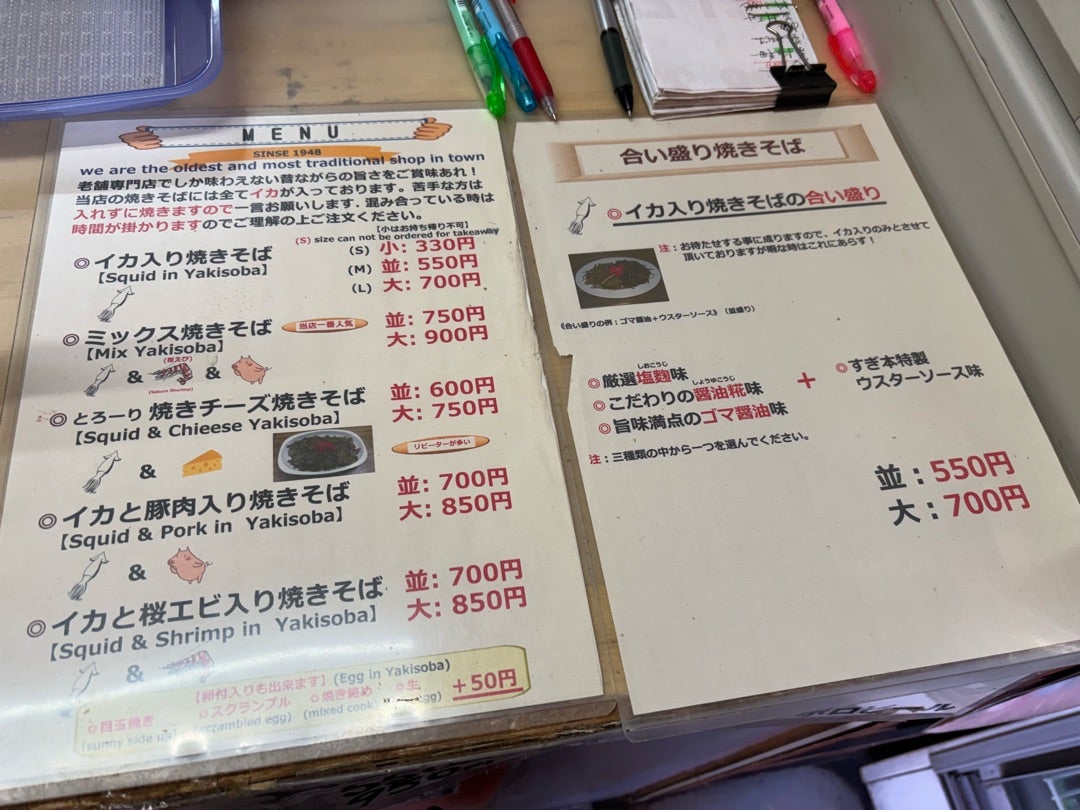 MENU
SINSE 1948
we are the oldest and most traditional shop in town
老舗専門店でしか味わえない昔ながらの旨さをご賞味あれ！
当店の焼きそばには全てイカが入っております。苦手な方は
入れずに焼きますので一言お願いします. 混み合っている時は
時間が掛かりますのでご理解の上ご注文ください。
【小はお持ち帰り不可】
(S) size can not be ordered for takeaway
◎イカ入り焼きそば
【Squid in Yakisoba】
(S) 小: 330円
(M) 並: 550円
(L) 大: 700円
◎ミックス焼きそば
【Mix Yakisoba】
当店一番人気
並: 750円
大: 900円
(桜えび)
& &
(Sakura Shurimp)
◎とろーり 焼きチーズ焼きそば
【Squid & Chieese Yakisoba】
並: 600円
大: 750円
&
リピーターが多い
◎イカと豚肉入り焼きそば
【Squid & Pork in Yakisoba】
並: 700円
大: 850円
&
◎イカと桜エビ入り焼きそば
【Squid & Shrimp in Yakisoba】
並: 700円
大: 850円
&
【卵付入りも出来ます】(Egg in Yakisoba)
◎目玉焼き ◎スクランブル ◎焼き絡め ◎生 +50円
(sunny side up) (scrambled egg) (mixed cook)
合い盛り焼きそば
◎イカ入り焼きそばの合い盛り
注：お待たせする事に成りますので、イカ入りのみとさせて
頂いておりますが暇な時はこれにあらず！
《合い盛りの例：ゴマ醤油＋ウスターソース》（並盛り）
しおこうじ
◎厳選塩麹味
しょうゆこうじ
◎こだわりの醤油糀味
◎旨味満点のゴマ醤油味
+
◎すぎ本特製
ウスターソース味
注：三種類の中から一つを選んでください。
並：550円
大：700円